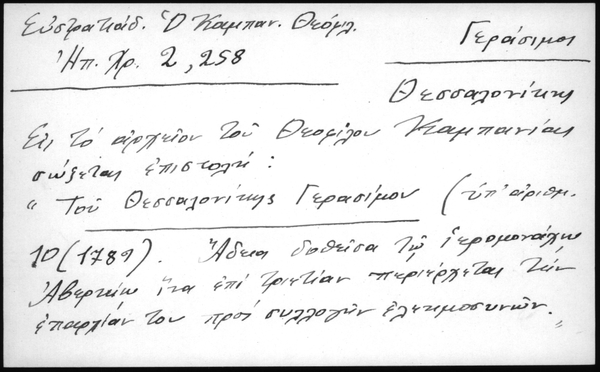 Εὐστρατιάδ. Ὁ Καμπαν. Θεόφιλ.
Ἠπ. Χρ. 2, 258
Γεράσιμος
Θεσσαλονίκης
Εἰς τὸ ἀρχεῖον τοῦ Θεοφίλου Καμπανίας
σώζεται ἐπιστολή:
"Τοῦ Θεσσαλονίκης Γερασίμου (ὑπ' ἀριθμ.
10 (1789). Ἄδεια δοθεῖσα τῷ ἱερομονάχῳ
Ἀβερκίῳ ἵνα ἐπὶ τριετίαν περιέρχεται τὴν
ἐπαρχίαν του πρὸς συλλογὴν ἐλεημοσυνῶν."